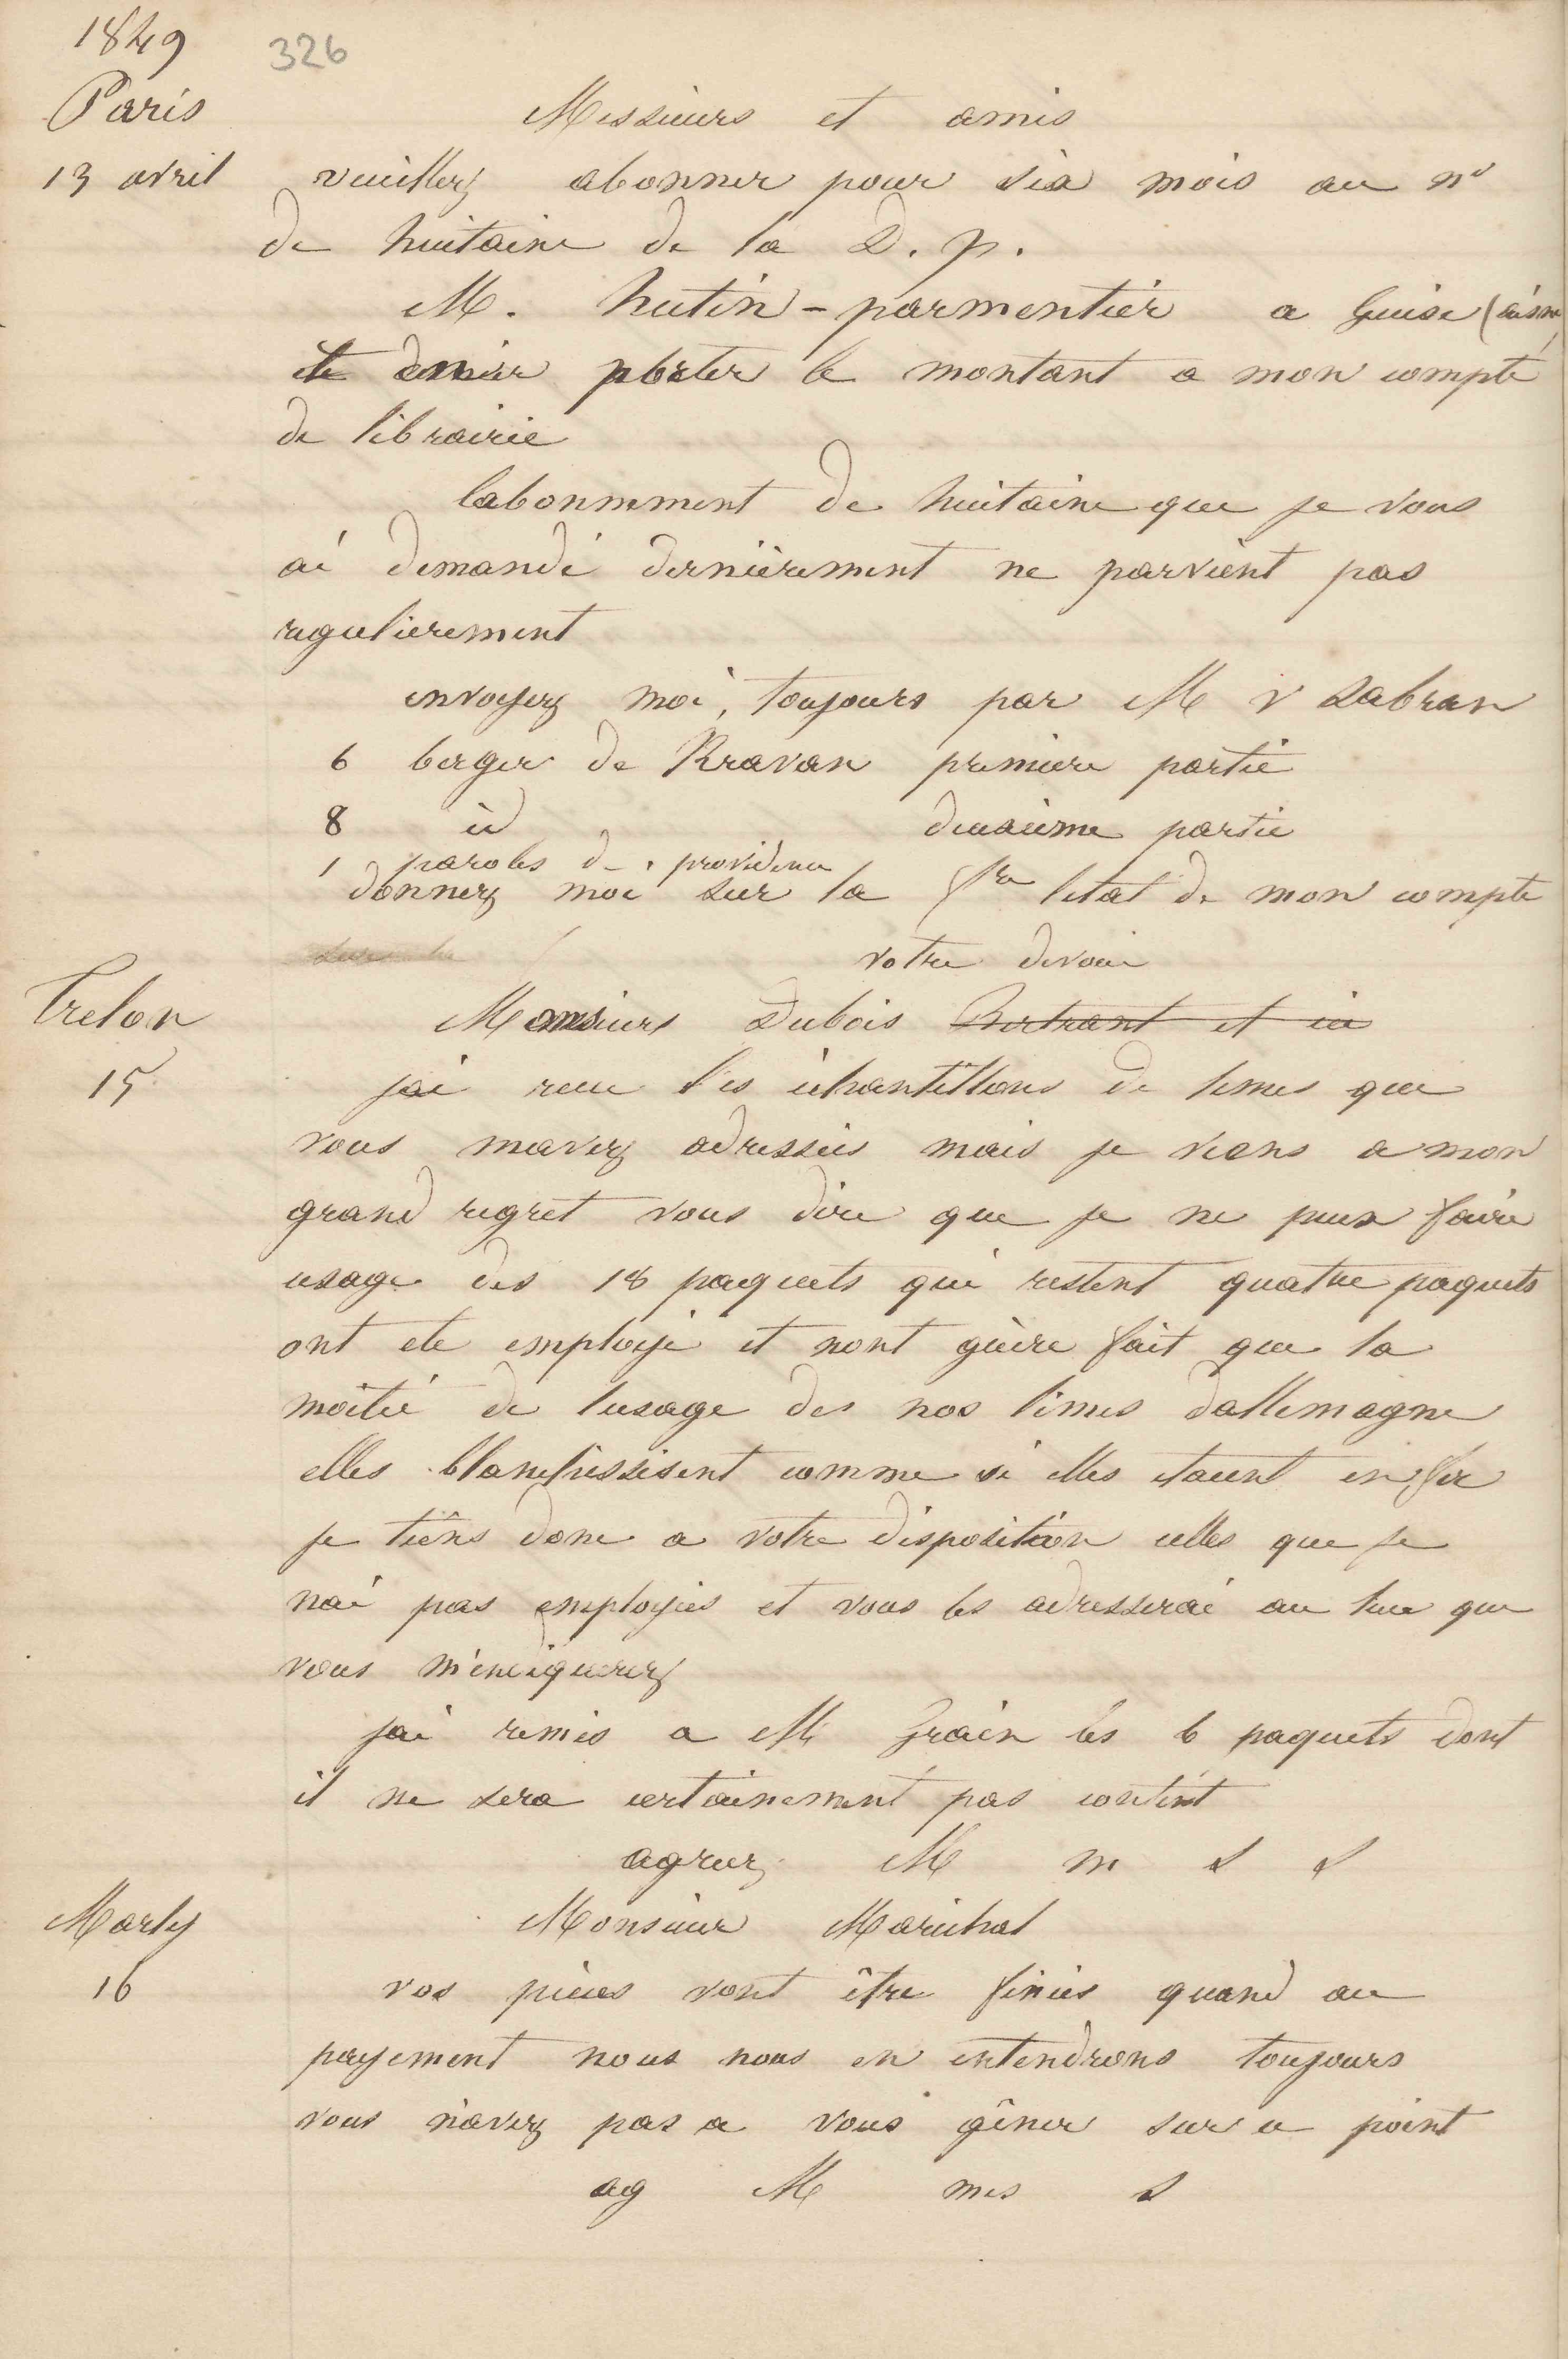 1849
326
Paris
Messieurs et amis
13 avril veuillez abonner pour six mois au no
de huitaine de la D. p.
M. hutin - parmentier a Guise (aisne
et porter le montant a mon compte
de librairie
labonnement de huitaine que je vous
ai demandé dernièrement ne parvient pas
regulierement
envoyez moi, toujours par M v Labran
6 berger de Kravan premiere partie
8 id deuxieme partie
1 paroles de providence
donnez moi sur la fre letat de mon compte
sur la f
votre devoué
Trelon
Monsieur Dubois Bertrant et cie
15
jai recu les échantillons de limes que
vous mavez adressés mais je viens a mon
grand regret vous dire que je ne peux faire
usage des 18 paquets qui restent quatre paquets
ont ete employé et nont guère fait que la
moitié de lusage des nos limes dallemagne
elles blanchissisent comme si elles etaient en fer
je tiens donc a votre disposition celles que je
nai pas employées et vous les adresserai au lieu que
vous m'indiquerez
jai remis a M. Grain les 6 paquets dont
il ne sera certainement pas content
agreez M m s s
Marly
Monsieur Maréchal
16
vos pièces vont être finies quand au
payement nous nous en entendrons toujours
vous n'avez pas a vous gêner sur ce point
ag M mes s